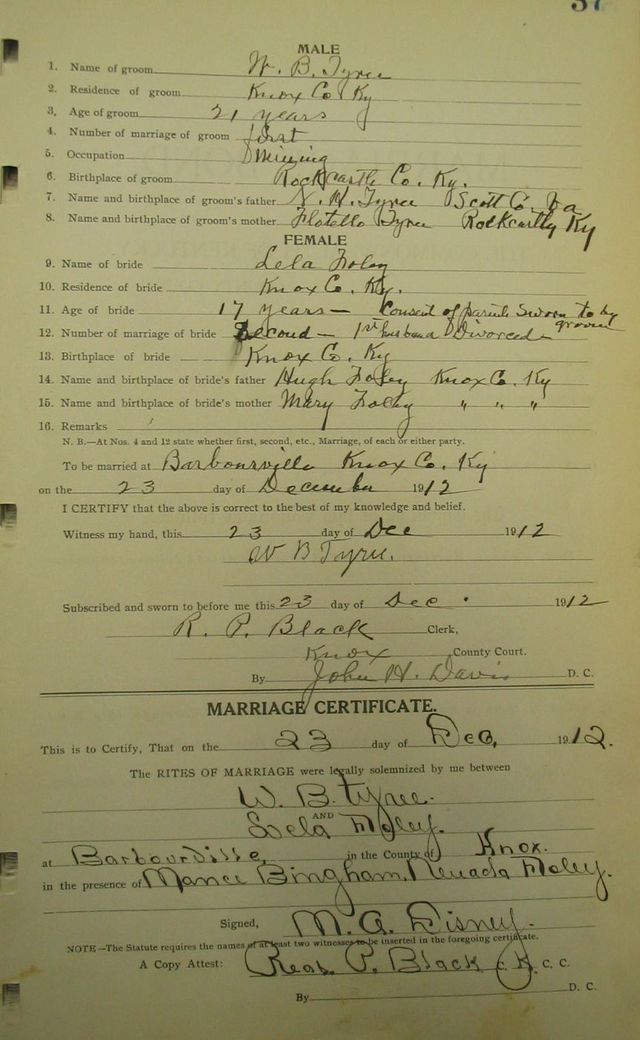 37
MALE
1. Name of groom W. B. Tyree
2. Residence of groom Knox Co Ky
3. Age of groom 21 years
4. Number of marriage of groom first
5. Occupation Mining
6. Birthplace of groom Rockcastle Co. Ky.
7. Name and birthplace of groom's father N. H. Tyree Scott Co. Va
8. Name and birthplace of groom's mother Tyree Rockcastle Ky
FEMALE
9. Name of bride Lela Foley
10. Residence of bride Knox Co. Ky.
11. Age of bride 17 years — Consent of parents sworn to by groom
12. Number of marriage of bride Second — 1st husband Divorced —
13. Birthplace of bride Knox Co. Ky
14. Name and birthplace of bride's father Hugh Foley Knox Co. Ky
15. Name and birthplace of bride's mother Mary Foley " " "
16. Remarks
N. B.—At Nos. 4 and 12 state whether first, second, etc., Marriage, of each or either party.
To be married at Barbourville Knox Co. Ky
on the 23 day of December 1912
I CERTIFY that the above is correct to the best of my knowledge and belief.
Witness my hand, this 23 day of Dec 1912
W B Tyree.
Subscribed and sworn to before me this 23 day of Dec. 1912
R. P. Black Clerk,
Knox County Court.
By John H. Davis D. C.
MARRIAGE CERTIFICATE.
This is to Certify, That on the 23 day of Dec, 1912.
The RITES OF MARRIAGE were legally solemnized by me between
W. B. Tyree.
AND
Lela Foley.
at Barbourville, in the County of Knox.
in the presence of Mance Bingham, Nevada Foley.
Signed, M. A. Disney.
NOTE—The Statute requires the names of at least two witnesses to be inserted in the foregoing certificate.
A Copy Attest: Read P. Black C. K. C. C.
By D. C.